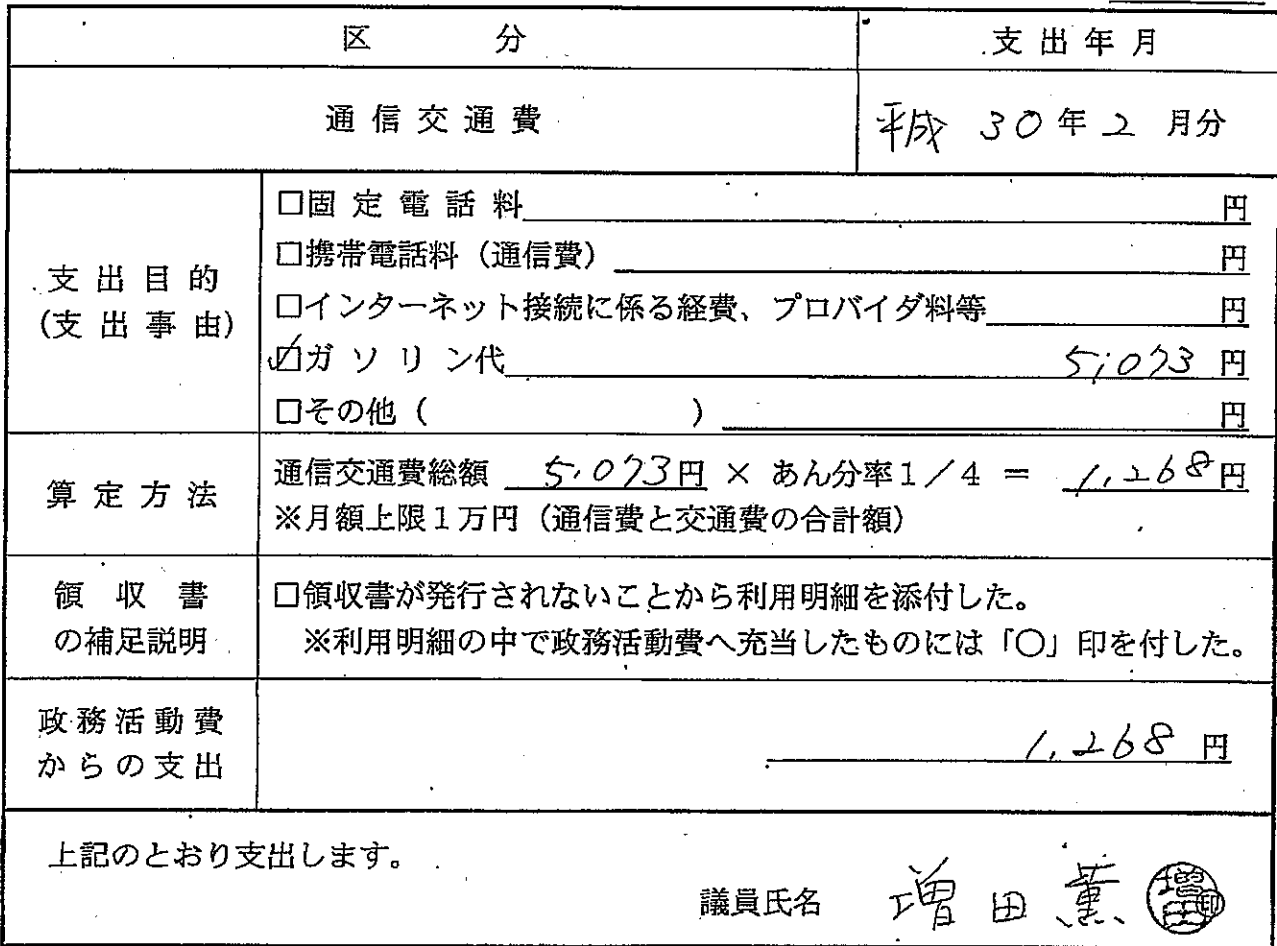 区分 支出年月
通信交通費 平成 30年2月分
支出目的
(支出事由)
□固定電話料 円
□携帯電話料(通信費) 円
□インターネット接続に係る経費、プロバイダ料等 円
☑ガソリン代 5,073 円
□その他( ) 円
算定方法
通信交通費総額 5,073円 × あん分率1/4 = 1,268円
※月額上限1万円(通信費と交通費の合計額)
領収書
の補足説明
□領収書が発行されないことから利用明細を添付した。
※利用明細の中で政務活動費へ充当したものには「○」印を付した。
政務活動費
からの支出
1,268 円
上記のとおり支出します。
議員氏名 増田 薫 増田印